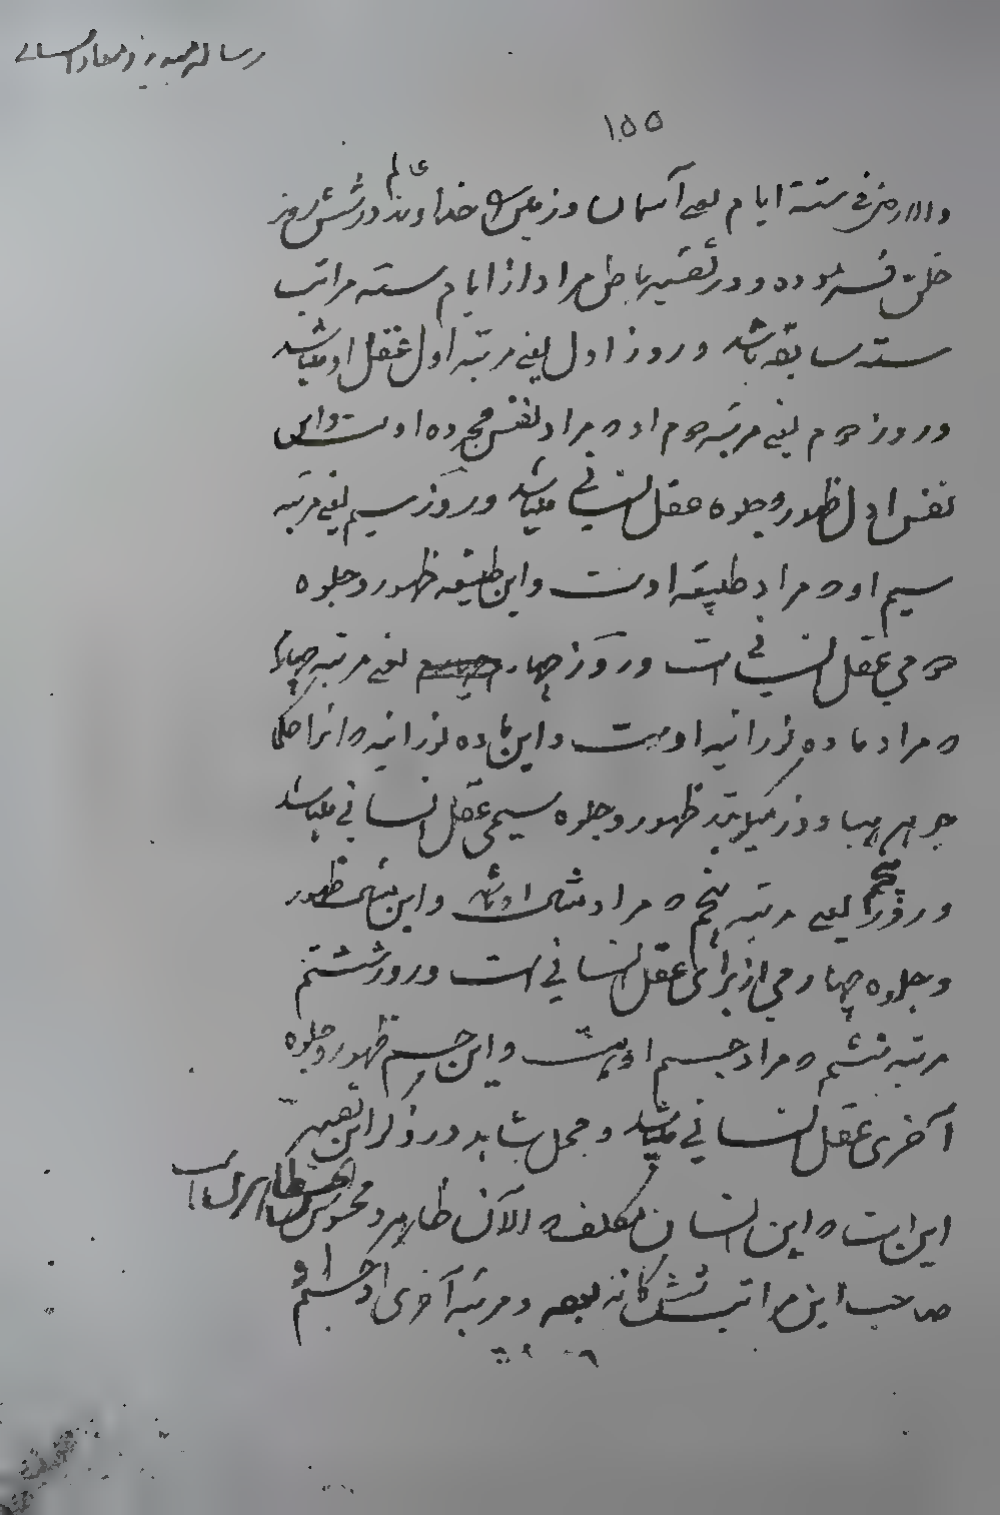 رساله
۱۵۵
والارض فی ستة ایام یعنی آسمان و زمین را خداوند عالم در شش روز
خلق فرموده و در تفسیر باطن مراد از ایام سته مراتب
سته سابقه باشد و روز اول یعنی مرتبه اول عقل او میباشد
و روز دوم یعنی مرتبه دوم او مراد نفس مجرده اوست و این
نفس اول ظهور و جلوه عقل انسانی میباشد و روز سیم یعنی مرتبه
سیم او که مراد طبیعة اوست و این طبیعه ظهور و جلوه
دومی عقل انسانی است و روز چهارم یعنی مرتبه چهارم
که مراد ماده نورانیه اوست و این ماده نورانیه که انرا حکما
جوهر هبا و ذر میگویند ظهور و جلوه سیمی عقل انسانی میباشد
و روز پنجم یعنی مرتبه پنجم که مراد مثال او باشد و این مثال ظهور
و جلوه چهارمی از برای عقل انسانی است و روز ششم
مرتبه ششم که مراد جسم اوست و این جسم ظهور و جلوه
آخری عقل انسانی میباشد و مجمل شاهد در ذکر این تفسیر
این است که این انسان مکلف که الآن ظاهر و محسوس
صاحب این مراتب ششگانه بوده و مرتبه آخری او جسم او